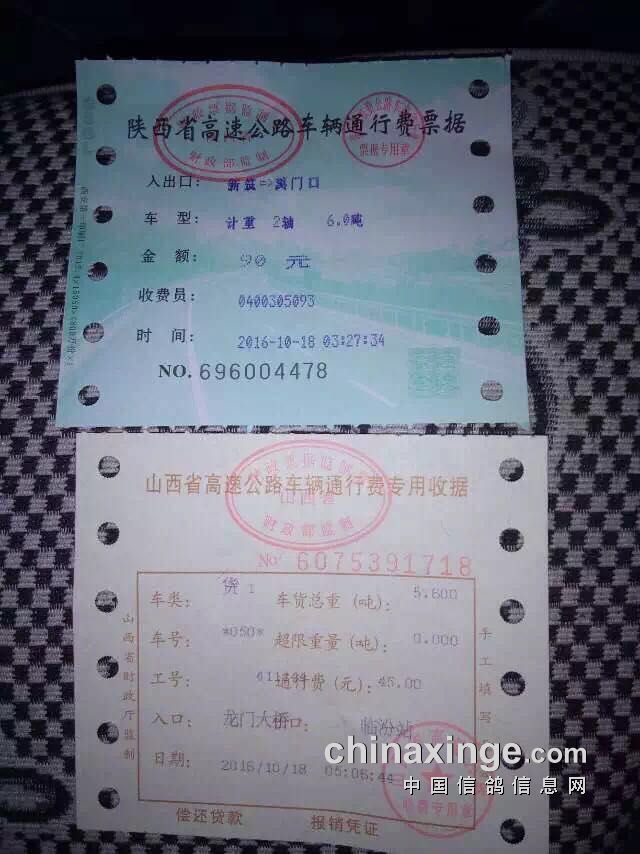 陕西省高速公路车辆通行费票据
财政部监制
票据专用章
入出口： 新筑=>禹门口
车 型： 计重 2轴 6.0吨
金 额： 90 元
收费员： 0400305093
时 间： 2016-10-18 03:27:34
NO. 696004478
山西省高速公路车辆通行费专用收据
山西省
财政部监制
No 6075391718
车类： 货 1 车货总重（吨）： 5.600
车号： *050* 超限重量（吨）： 0.000
工号： 通行费（元）： 45.00
入口： 龙门大桥 口： 临汾站
日期： 2016/10/18 05:06:44
偿还贷款 报销凭证
山西省财政厅监制
手工填写
chinaxinge.com
中国信鸽信息网